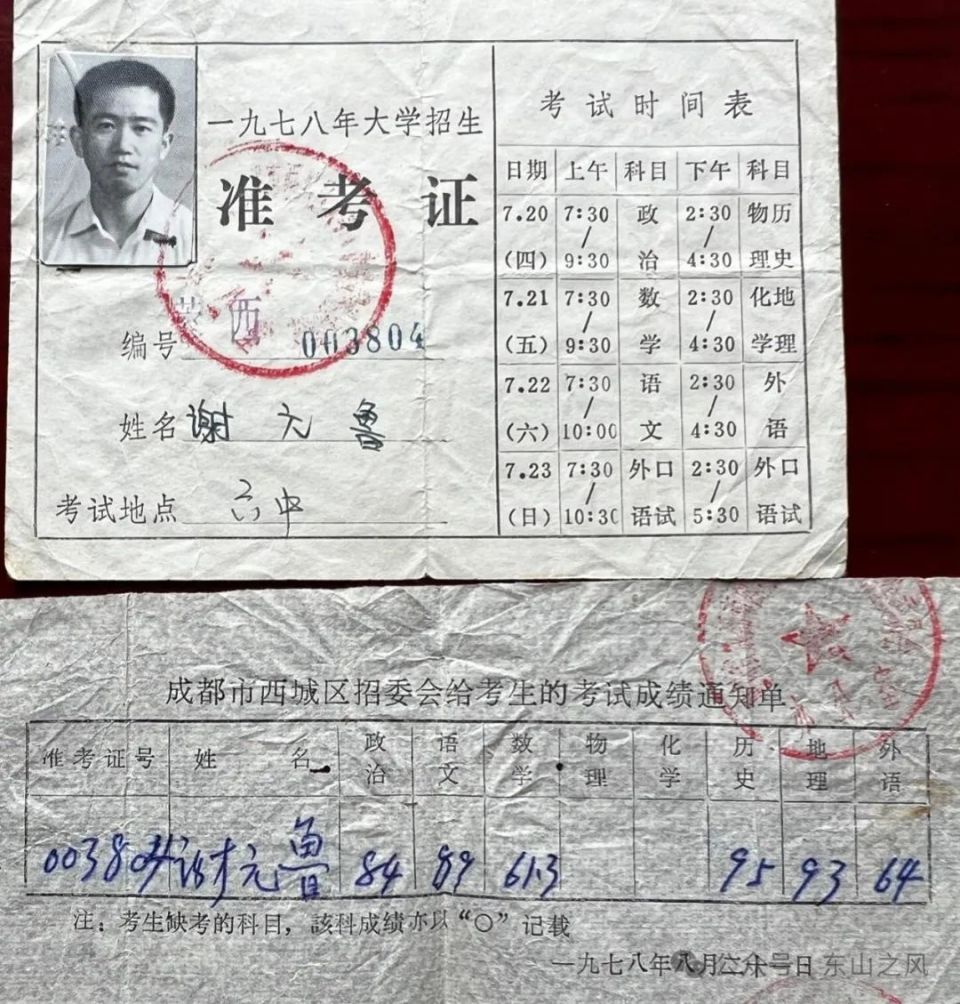 一九七八年大学招生
准考证
编号 西 003804
姓名 谢元鲁
考试地点 六中
考试时间表
日期 上午 科目 下午 科目
7.20 7:30 政 2:30 物历
(四) 9:30 治 4:30 理史
7.21 7:30 数 2:30 化地
(五) 9:30 学 4:30 学理
7.22 7:30 语 2:30 外
(六) 10:00 文 4:30 语
7.23 7:30 外口 2:30 外口
(日) 10:30 语试 5:30 语试
成都市西城区招委会给考生的考试成绩通知单
准考证号 姓名 政治 语文 数学 物理 化学 历史 地理 外语
003804 谢元鲁 84 89 61.3 95 93 64
注：考生缺考的科目，該科成绩亦以“〇”记载
一九七八年八月二十日
公众号 东山之风